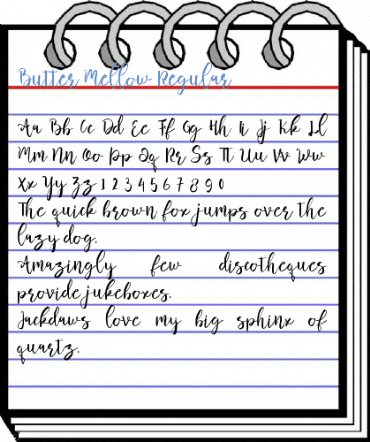 Butter Mellow Regular
Aa Bb Cc Dd Ee Ff Gg Hh Ii Jj Kk Ll
Mm Nn Oo Pp Qq Rr Ss Tt Uu Vv Ww
Xx Yy Zz 1 2 3 4 5 6 7 8 9 0
The quick brown fox jumps over the
lazy dog.
Amazingly few discotheques
provide jukeboxes.
Jackdaws love my big sphinx of
quartz.